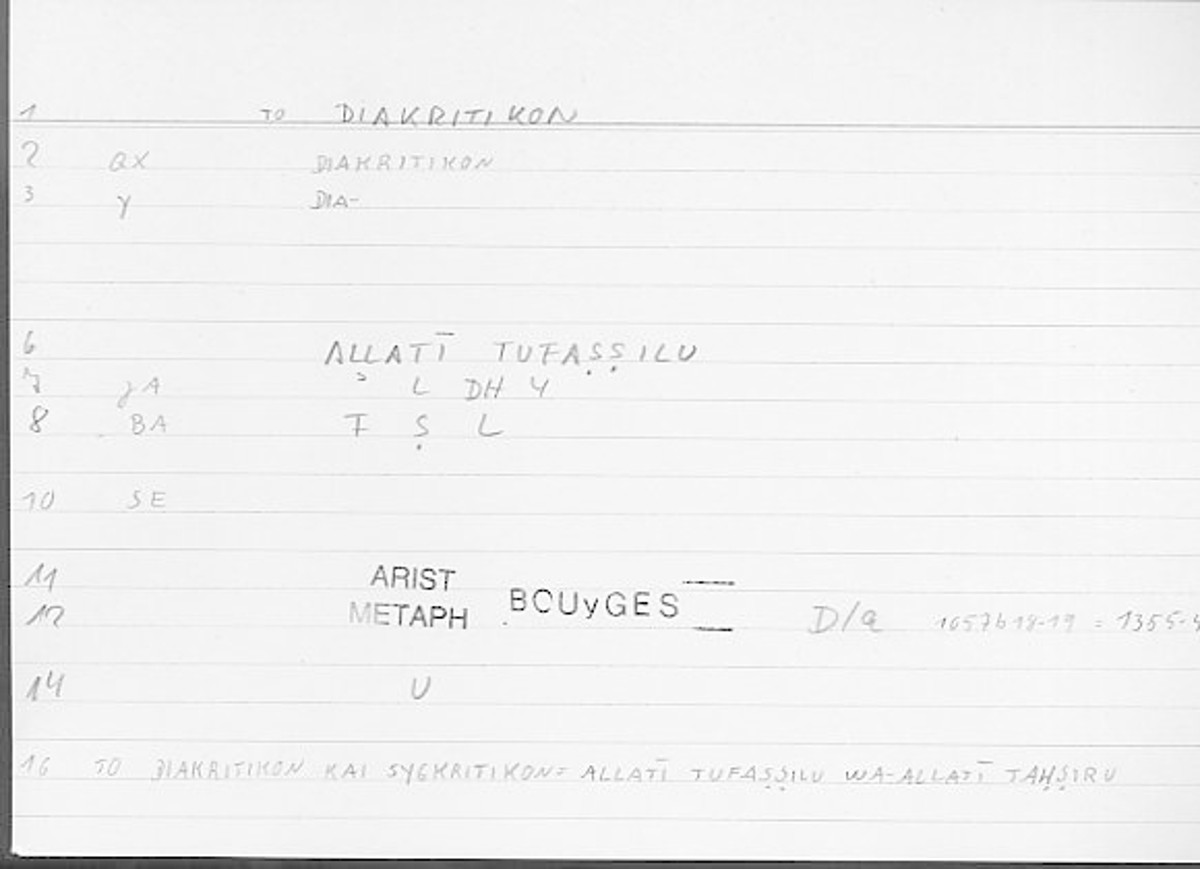 1 TO DIAKRITIKON
2 QX DIAKRITIKON
3 γ DIA-
6 ALLATĪ TUFAṢṢILU
7 JA ʾ L DH Y
8 BA F Ṣ L
10 SE
11 ARIST
12 METAPH BOUyGES D/a 1057b18-19 = 1355-
14 U
16 TO DIAKRITIKON KAI SYGKRITIKON= ALLATĪ TUFAṢṢILU WA-ALLATĪ TAḤṢIRU